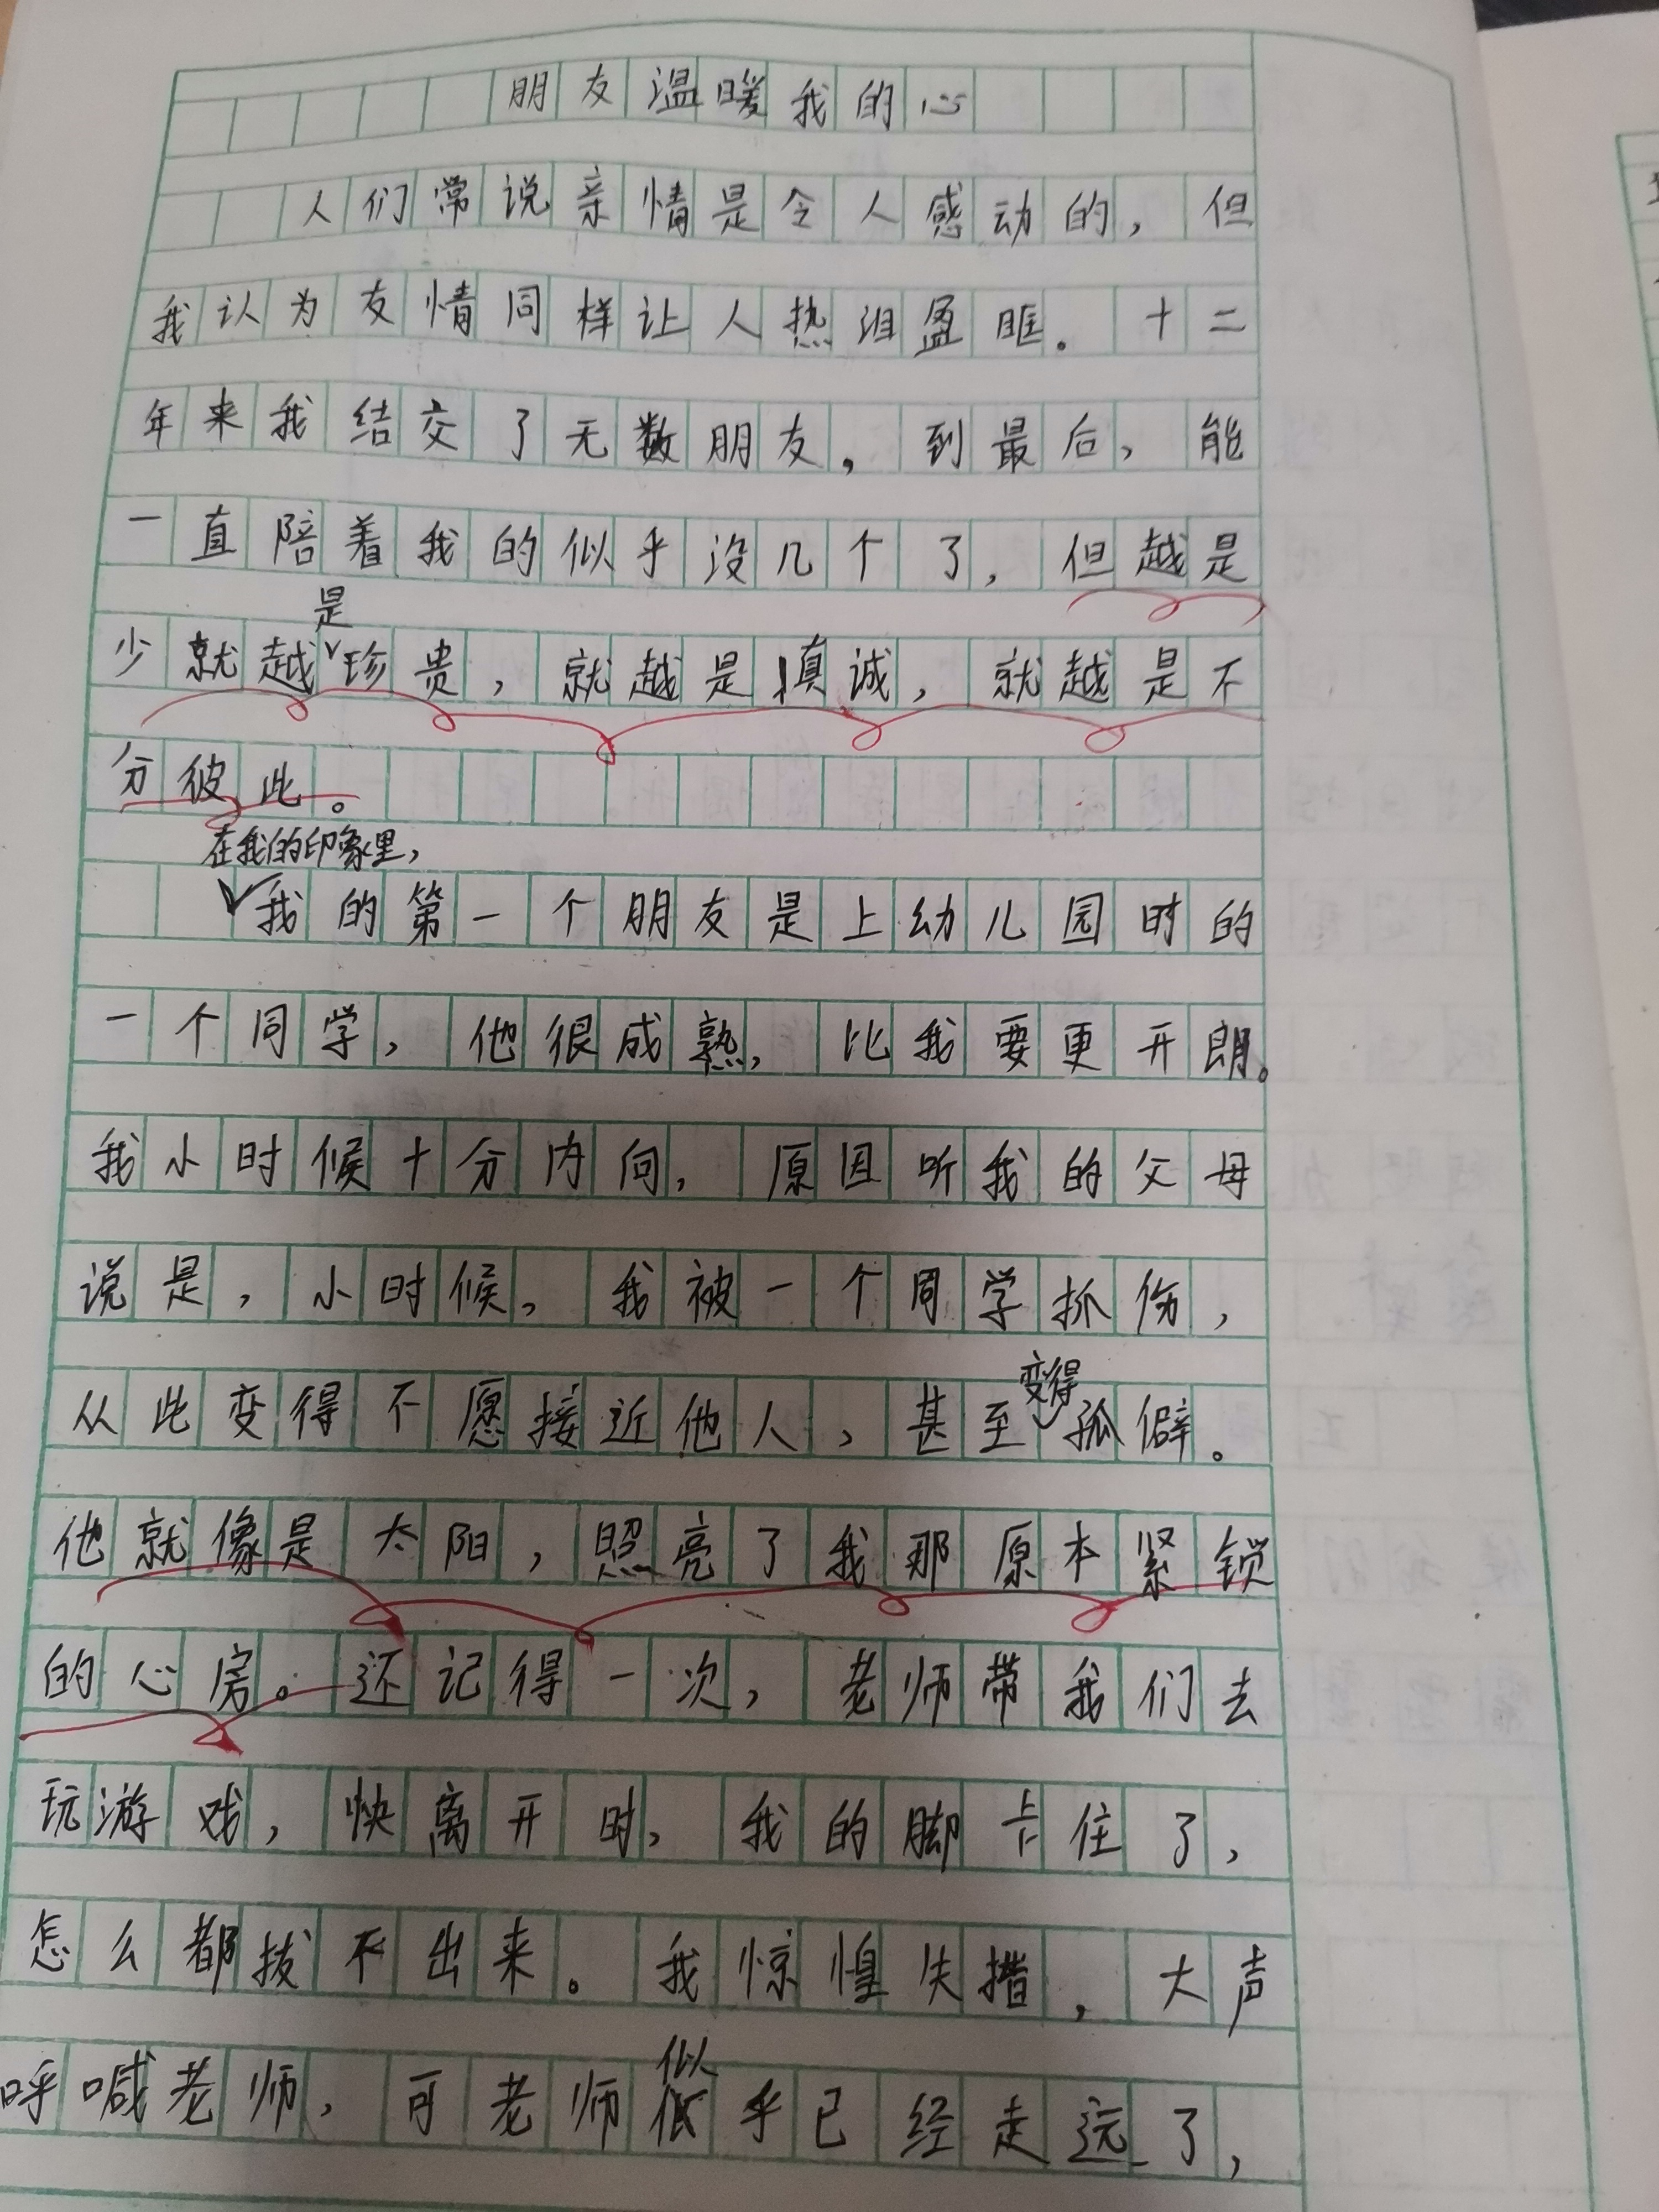 朋友温暖我的心
人们常说亲情是令人感动的，但
我认为友情同样让人热泪盈眶。十二
年来我结交了无数朋友，到最后，能
一直陪着我的似乎没几个了，但越是
是
少就越珍贵，就越是真诚，就越是不
分彼此。
在我的印象里，
我的第一个朋友是上幼儿园时的
一个同学，他很成熟，比我要更开朗。
我小时候十分内向，原因听我的父母
说是，小时候，我被一个同学抓伤，
变得
从此变得不愿接近他人，甚至孤僻。
他就像是太阳，照亮了我那原本紧锁
的心房。还记得一次，老师带我们去
玩游戏，快离开时，我的脚卡住了，
怎么都拔不出来。我惊惶失措，大声
似
呼喊老师，可老师乎已经走远了，